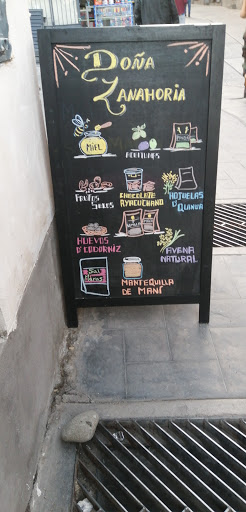 DOÑA
ZANAHORIA
MIEL
ACEITUNAS
FRUTOS
SECOS
CHOCOLATE
AYACUCHANO
HOJUELAS
D'QUINUA
HUEVOS
D'CODORNIZ
AVENA
NATURAL
MANTEQUILLA
DE MANÍ